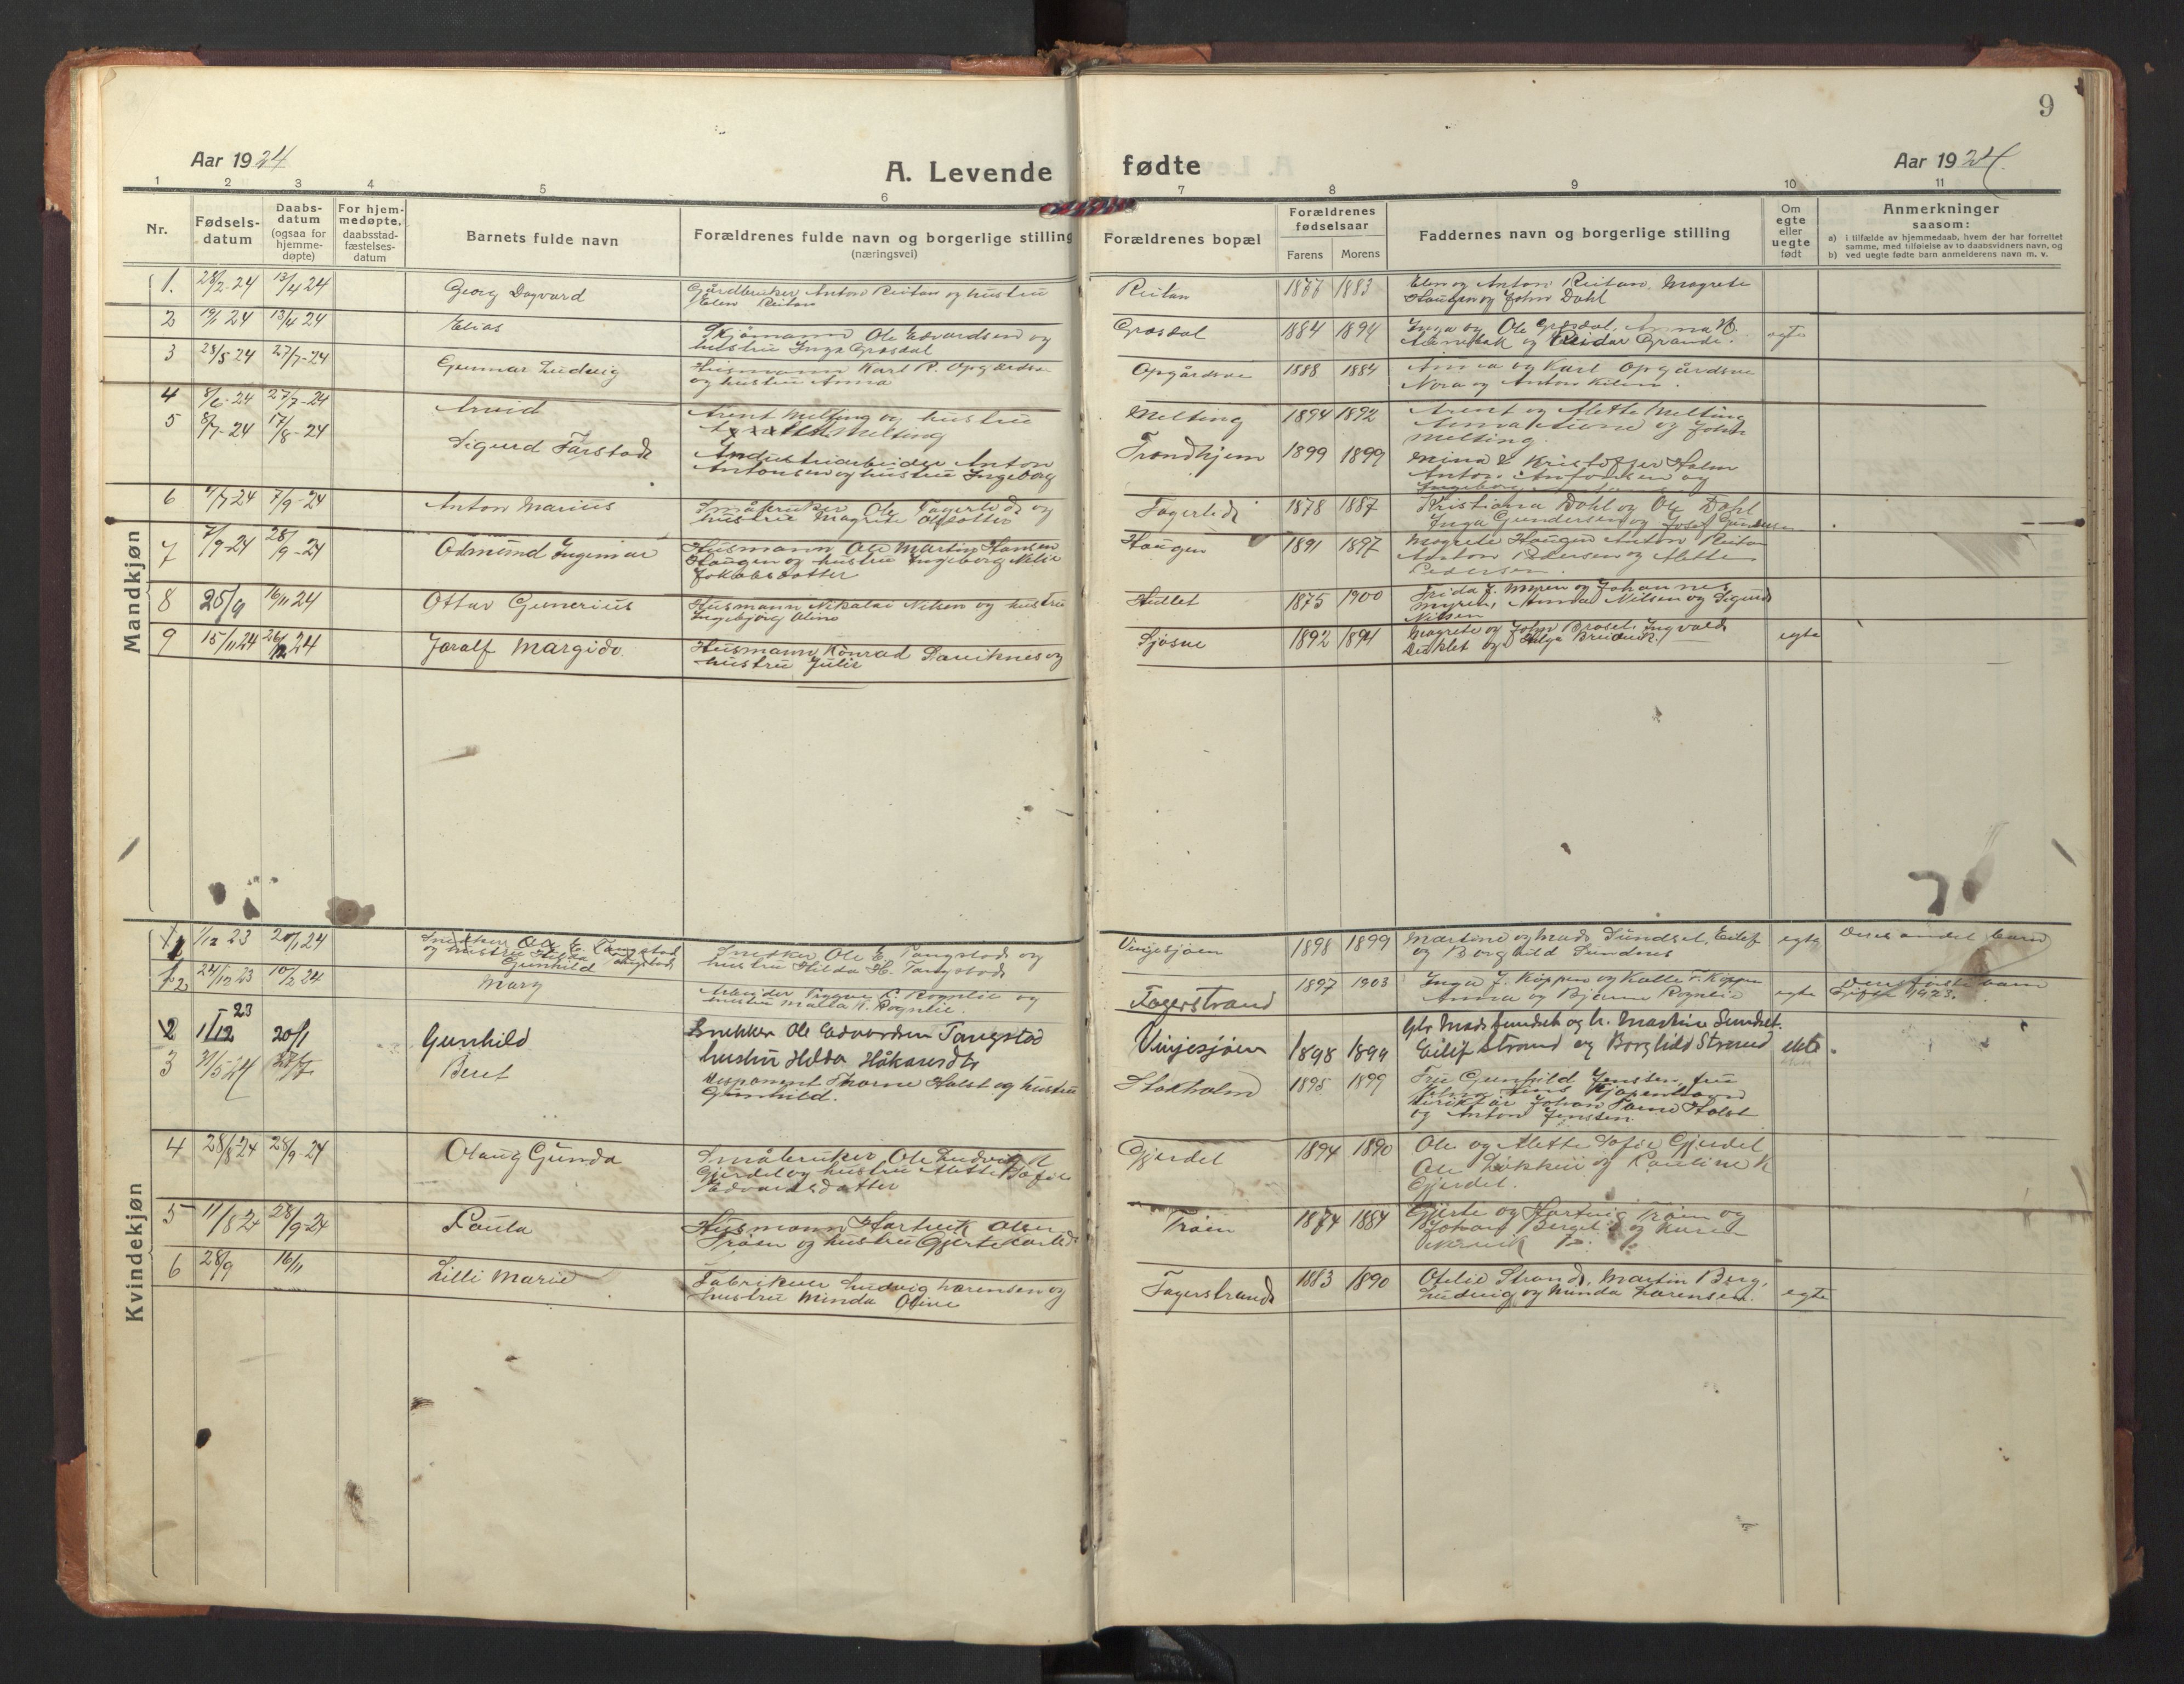 9
Aar 1924
A. Levende fødte
Aar 1924.
1 2 3 4 5 6 7 8 9 10 11
Nr.
Fødsels-
datum
Daabs-
datum
(ogsaa for
hjemme-
døpte)
For hjem-
medøpte,
daabsstad-
fæstelses-
datum
Barnets fulde navn
Forældrenes fulde navn og borgerlige stilling
(næringsvei)
Forældrenes bopæl
Forældrenes
fødselsaar
Farens Morens
Faddernes navn og borgerlige stilling
Om
egte
eller
uegte
født
Anmerkninger
saasom:
a) i tilfælde av hjemmedaab, hvem der har forrettet
samme, med tilføielse av to daabsvidners navn, og
b) ved uegte fødte barn anmelderens navn m. v.
Mandkjøn
1. 28/2-24 13/4 24 Georg Dagvard
Gårdbruker Anton Reitan og hustru
Elen Reitan
Reitan 1877 1883
Elen og Anton Reitan, Magrete
Haugen og John Dahl
2 19/1 24 13/4 24 Elias
Ole Edvardsen og
hustru Inga Grøsdal
Grøsdal 1884 1894
Inga og Ole Grøsdal, Anna
og Reidar Grande.
egte
3 28/5 24 27/7-24 Gunnar Ludvig
Husmann Karl R. Opgårdsne
og hustru Anna
Opgårdsne 1888 1884
Anna og Karl Opgårdsne
Nora og Anton
4 8/6-24 27/7-24 Arvid
Arent Melting og hustru
Melting
Melting 1894 1892
Arent og Alette Melting
og John
Melting.
5 8/7-24 17/8-24 Sigurd Farstad
Industriarbeider Anton
Antonsen og hustru Ingeborg
Trondhjem 1899 1899
Mina & Kristoffer Holm
Anton Antonsen og
Ingeborg
6 7/7 24 7/9-24 Anton Marius
Småbruker Ole Fagerlid og
hustru Magrete Olsdatter
Fagerlid 1878 1887
Kristiana Dahl og Ole Dahl
Inga Gundersen og Josef Gundersen
7 7/9-24 28/9-24 Odmund Ingemar
Husmann Ole Martin Hansen
Haugen og hustru Ingeborg
Jakobsdatter
Haugen 1891 1897
Magrete Haugen Anton Reitan
Anton Pedersen og Alette
Pedersen.
8 25/9 16/11 24 Ottar Gunerius
Husmann Nikolai Nilsen og hustru
Ingebjørg Oline
Hullet 1875 1900
Frida J. Myren og Johannes
Myren, Anna Nilsen og Sigurd
Nilsen
9 15/11 24 26/12 24 Jaralf Margido
Husmann Konrad og
hustru Julie
Sjøsne 1892 1894
Magrete og John Brøset, Ingvald
og Helga
egte
Kvindekjøn
1 1/12 23 20/1 24
Snekker Ole E. Tangstad
og hustru Hilda Tangstad
Gunhild
Snekker Ole E. Tangstad og
hustru Hilda H. Tangstad
Vingesjøen 1898 1899
Martine og Mads Sundset, Eilef
og Borghild
egte
Deres andet barn
2 24/12 23 10/2 24 Mary
Arbeider Trygve Rognlie og
hustru Malla K. Rognlie.
Fagerstrand 1897 1903
Inga J. Köppen og Kalle F. Köppen
Anna og Bjarne Rognlie
egte
Deres første barn
Gift 1923.
2 1/12 23 20/1 Gunhild
Snekker Ole Edvardsen Tangstad
hustru Hilda Håkonsdtr
Vinjesjøen 1898 1899
Gbr. Mads Sundset og h. Martine Sundset.
Eilif Strand og Borghild Strand
ekte
3 31/5 24 Beret
Disponent Thorne Holst og hustru
Gunhild.
Stokholm 1895 1899
Fru Gunhild Jenssen, fru
Kjøpenhavn
direktør Johan Holst
og Anton Jenssen.
4 28/8 24 28/9-24 Olaug Gunda
Småbruker Ole Ludvig
Gjerdet og hustru Alette Sofie
Edvardsdatter
Gjerdet 1894 1890
Ole og Alette Sofie Gjerdet
Ole og Pauline K
Gjerdet.
5 11/8 24 28/9-24 Paula
Husmann Hartvik Olsen
Trøen og hustru Gjerte
Trøen 1874 1884
Gjerte og Hartvig Trøen og
Johan og Karen
6 28/9 16/11 Lilli Marie
Fabrikeier Ludvig Larensen og
hustru Minda Oline
Fagerstrand 1883 1890
Ofelie Strand, Martin Berg,
Ludvig og Minda Larensen.
egte